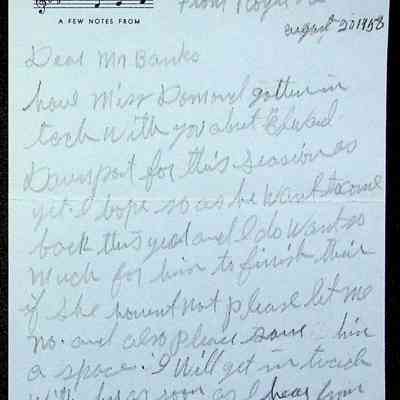 A FEW NOTES FROM
From
August 20 1958
Dear Mr Banks
have Miss Domond gotten in
toch with you abut Edward
Davenport for this season as
yet. I hope so as he want to come
back this year and I do want so
much for him to finish their
if she havent not please let me
no. and also please save him
a space. I Will get in touch
as soon as I hear from